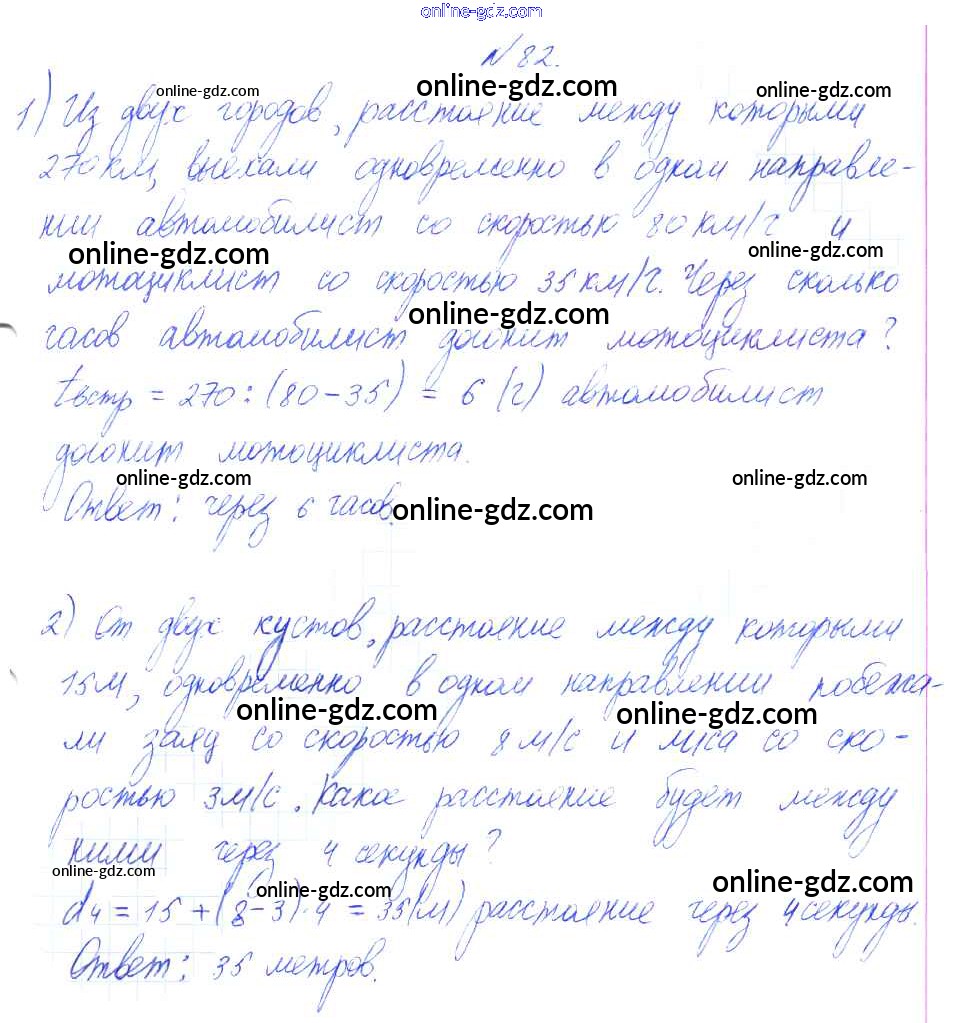 online-gdz.com
№82.
online-gdz.com online-gdz.com online-gdz.com
1) Из двух городов, расстояние между которыми
270 км, выехали одновременно в одном направле-
нии автомобилист со скоростью 80 км/ч и
online-gdz.com online-gdz.com
мотоциклист со скоростью 35 км/ч. Через сколько
online-gdz.com
часов автомобилист догонит мотоциклиста?
tвстр = 270 : (80 - 35) = 6 (ч) автомобилист
догонит мотоциклиста.
online-gdz.com online-gdz.com
Ответ: через 6 часов.
online-gdz.com
2) От двух кустов, расстояние между которыми
15 м, одновременно в одном направлении побежа-
online-gdz.com online-gdz.com
ли заяц со скоростью 8 м/с и лиса со ско-
ростью 3 м/с. Какое расстояние будет между
ними через 4 секунды?
online-gdz.com online-gdz.com online-gdz.com
d4 = 15 + (8 - 3) · 4 = 35 (м) расстояние через 4 секунды.
Ответ: 35 метров.